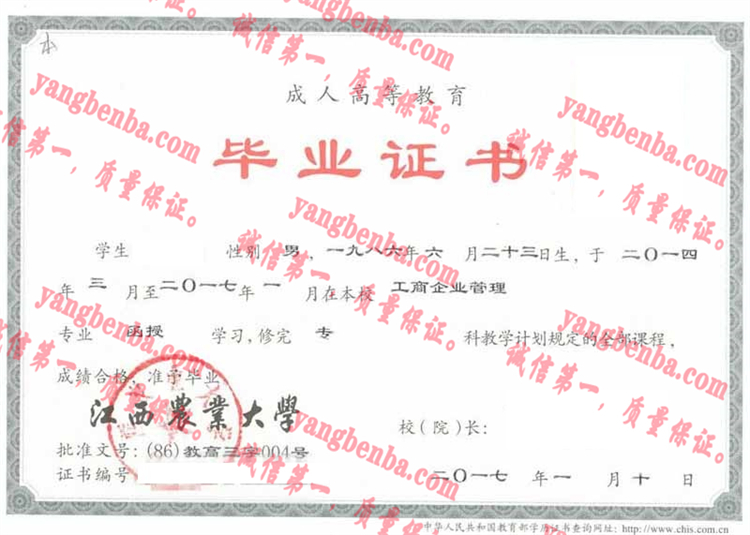 本
成人高等教育
毕业证书
学生 性别 男，一九八六年六月二十三日生，于二〇一四
年三月至二〇一七年一月在本校 工商企业管理
专业 函授 学习，修完 专 科教学计划规定的全部课程，
成绩合格，准予毕业
江西农业大学
校（院）长：
批准文号：(86)教高三字004号
证书编号
二〇一七年一月十日
中华人民共和国教育部学历证书查询网址：http://www.chis.com.cn
yangbenba.com
诚信第一，质量保证。
yangbenba.com
诚信第一，质量保证。
yangbenba.com
诚信第一，质量保证。
yangbenba.com
诚信第一，质量保证。
yangbenba.com
诚信第一，质量保证。
yangbenba.com
诚信第一，质量保证。